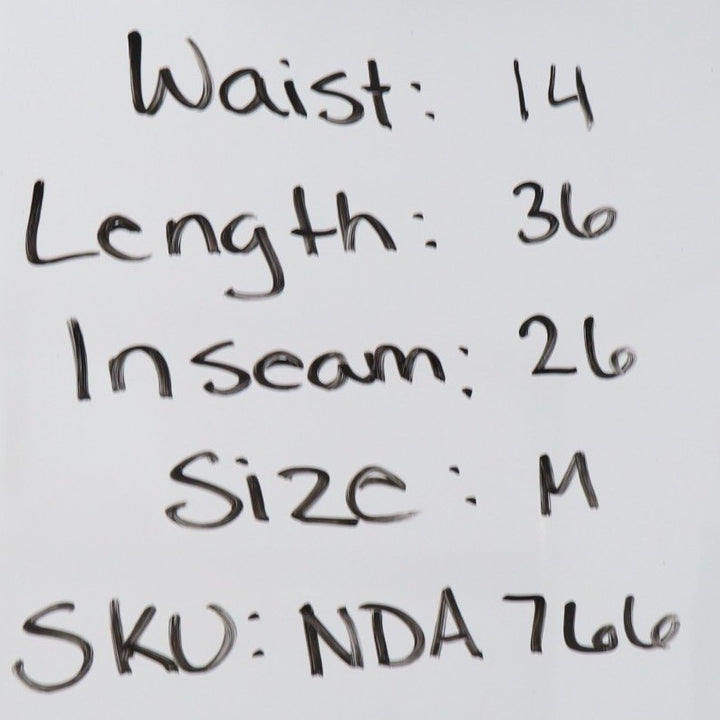 Waist: 14
Length: 36
Inseam: 26
Size: M
SKU: NDA 766